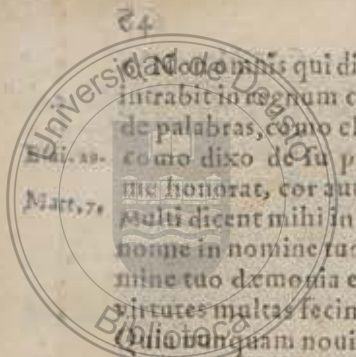 64
Non omnis qui di
intrabit in regnum c
de palabras, como cl
Esai. 29. como dixo de su p
me honorat, cor aut
Matt. 7. Multi dicent mihi in
nonne in nomine tuo
mine tuo dæmonia e
virtutes multas fecim
Quia nunquam noui
Universidad de Deusto
Biblioteca